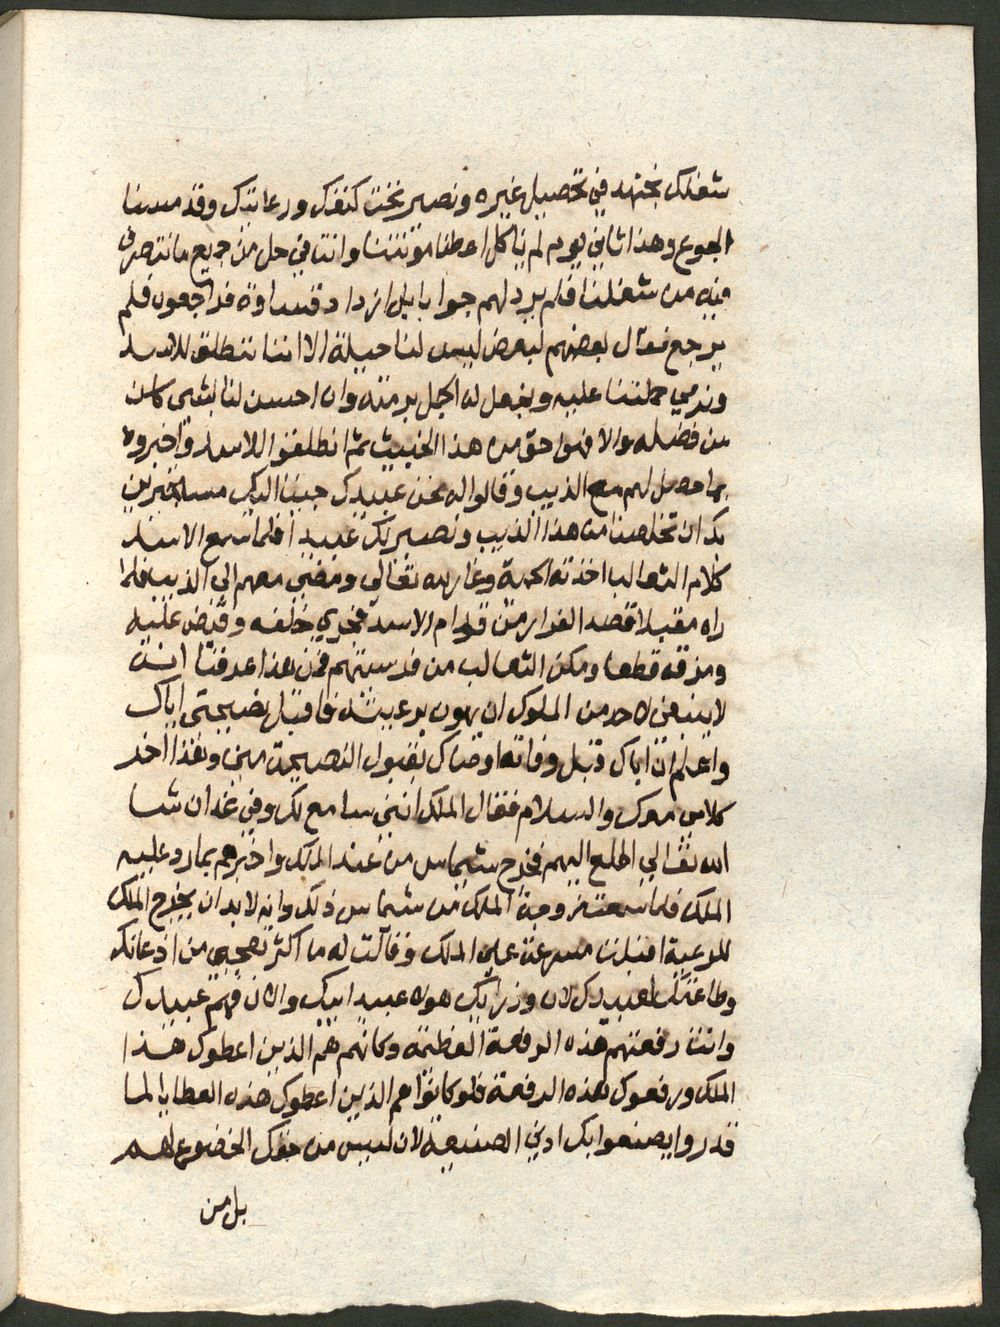 شغلك نجتهد في تحصيل غيره ونصير تحت كنفك ورعايتك وقد مسنا
الجوع وهذا ثاني يوم لم ناكل اعطنا مونتنا وانت في حل من جميع ما تتصرف
فيه من شغلنا فلم يرد لهم جوابا بل ازداد قساوة فراجعوه فلم
يرجع فقال بعضهم لبعض ليس لنا حيلة الا اننا ننطلق للاسد
ونرمي حملتنا عليه ونجعل له الجمل برمته وان احسن لنا بشي كان
من فضله والا فهو احق من هذا الخبيث ثم انطلقوا للاسد واخبروه
بما حصل لهم مع الذيب وقالوا له نحن عبيدك جينا اليك مستجيرين
بك ان تخلصنا من هذا الذيب ونصير لك عبيدا فلما سمع الاسد
كلام الثعالب اخذته الحمية وغار لله تعالي ومضي معهم الي الذيب فلما
راه مقبلا قصد الفرار من قدام الاسد فجري خلفه وقبض عليه
ومزقه قطعا ومكن الثعالب من فريستهم فمن هذا عرفنا انه
لا ينبغي لاحد من الملوك ان يهون برعيته فاقبل نصيحتي اياك
واعلم ان اباك قبل وفاته اوصاك بقبول النصيحة مني وهذا اخر
كلامي معك والسلام فقال الملك انني سامع لك وفي غد ان شا
الله تعالي اطلع اليهم فخرج شماس من عند الملك واخبرهم بما رد عليه
الملك فلما سمعت زوجة الملك من شماس ذلك وانه لا بد ان يخرج الملك
للرعية اقبلت مسرعة علي الملك وقالت له ما اكثر تعجبي من اذعانك
وطاعتك لعبيدك لان وزرايك هولا عبيد ابيك والان فهم عبيدك
وانت رفعتهم هذه الرفعة العظيمة وكانهم هم الذين اعطوك هذا
الملك ورفعوك هذه الرفعة فلو كانوا هم الذين اعطوك هذه العطايا لما
قدروا يصنعوا بك ادني الصنيعة لان ليس من حقك الخضوع لهم
بل من